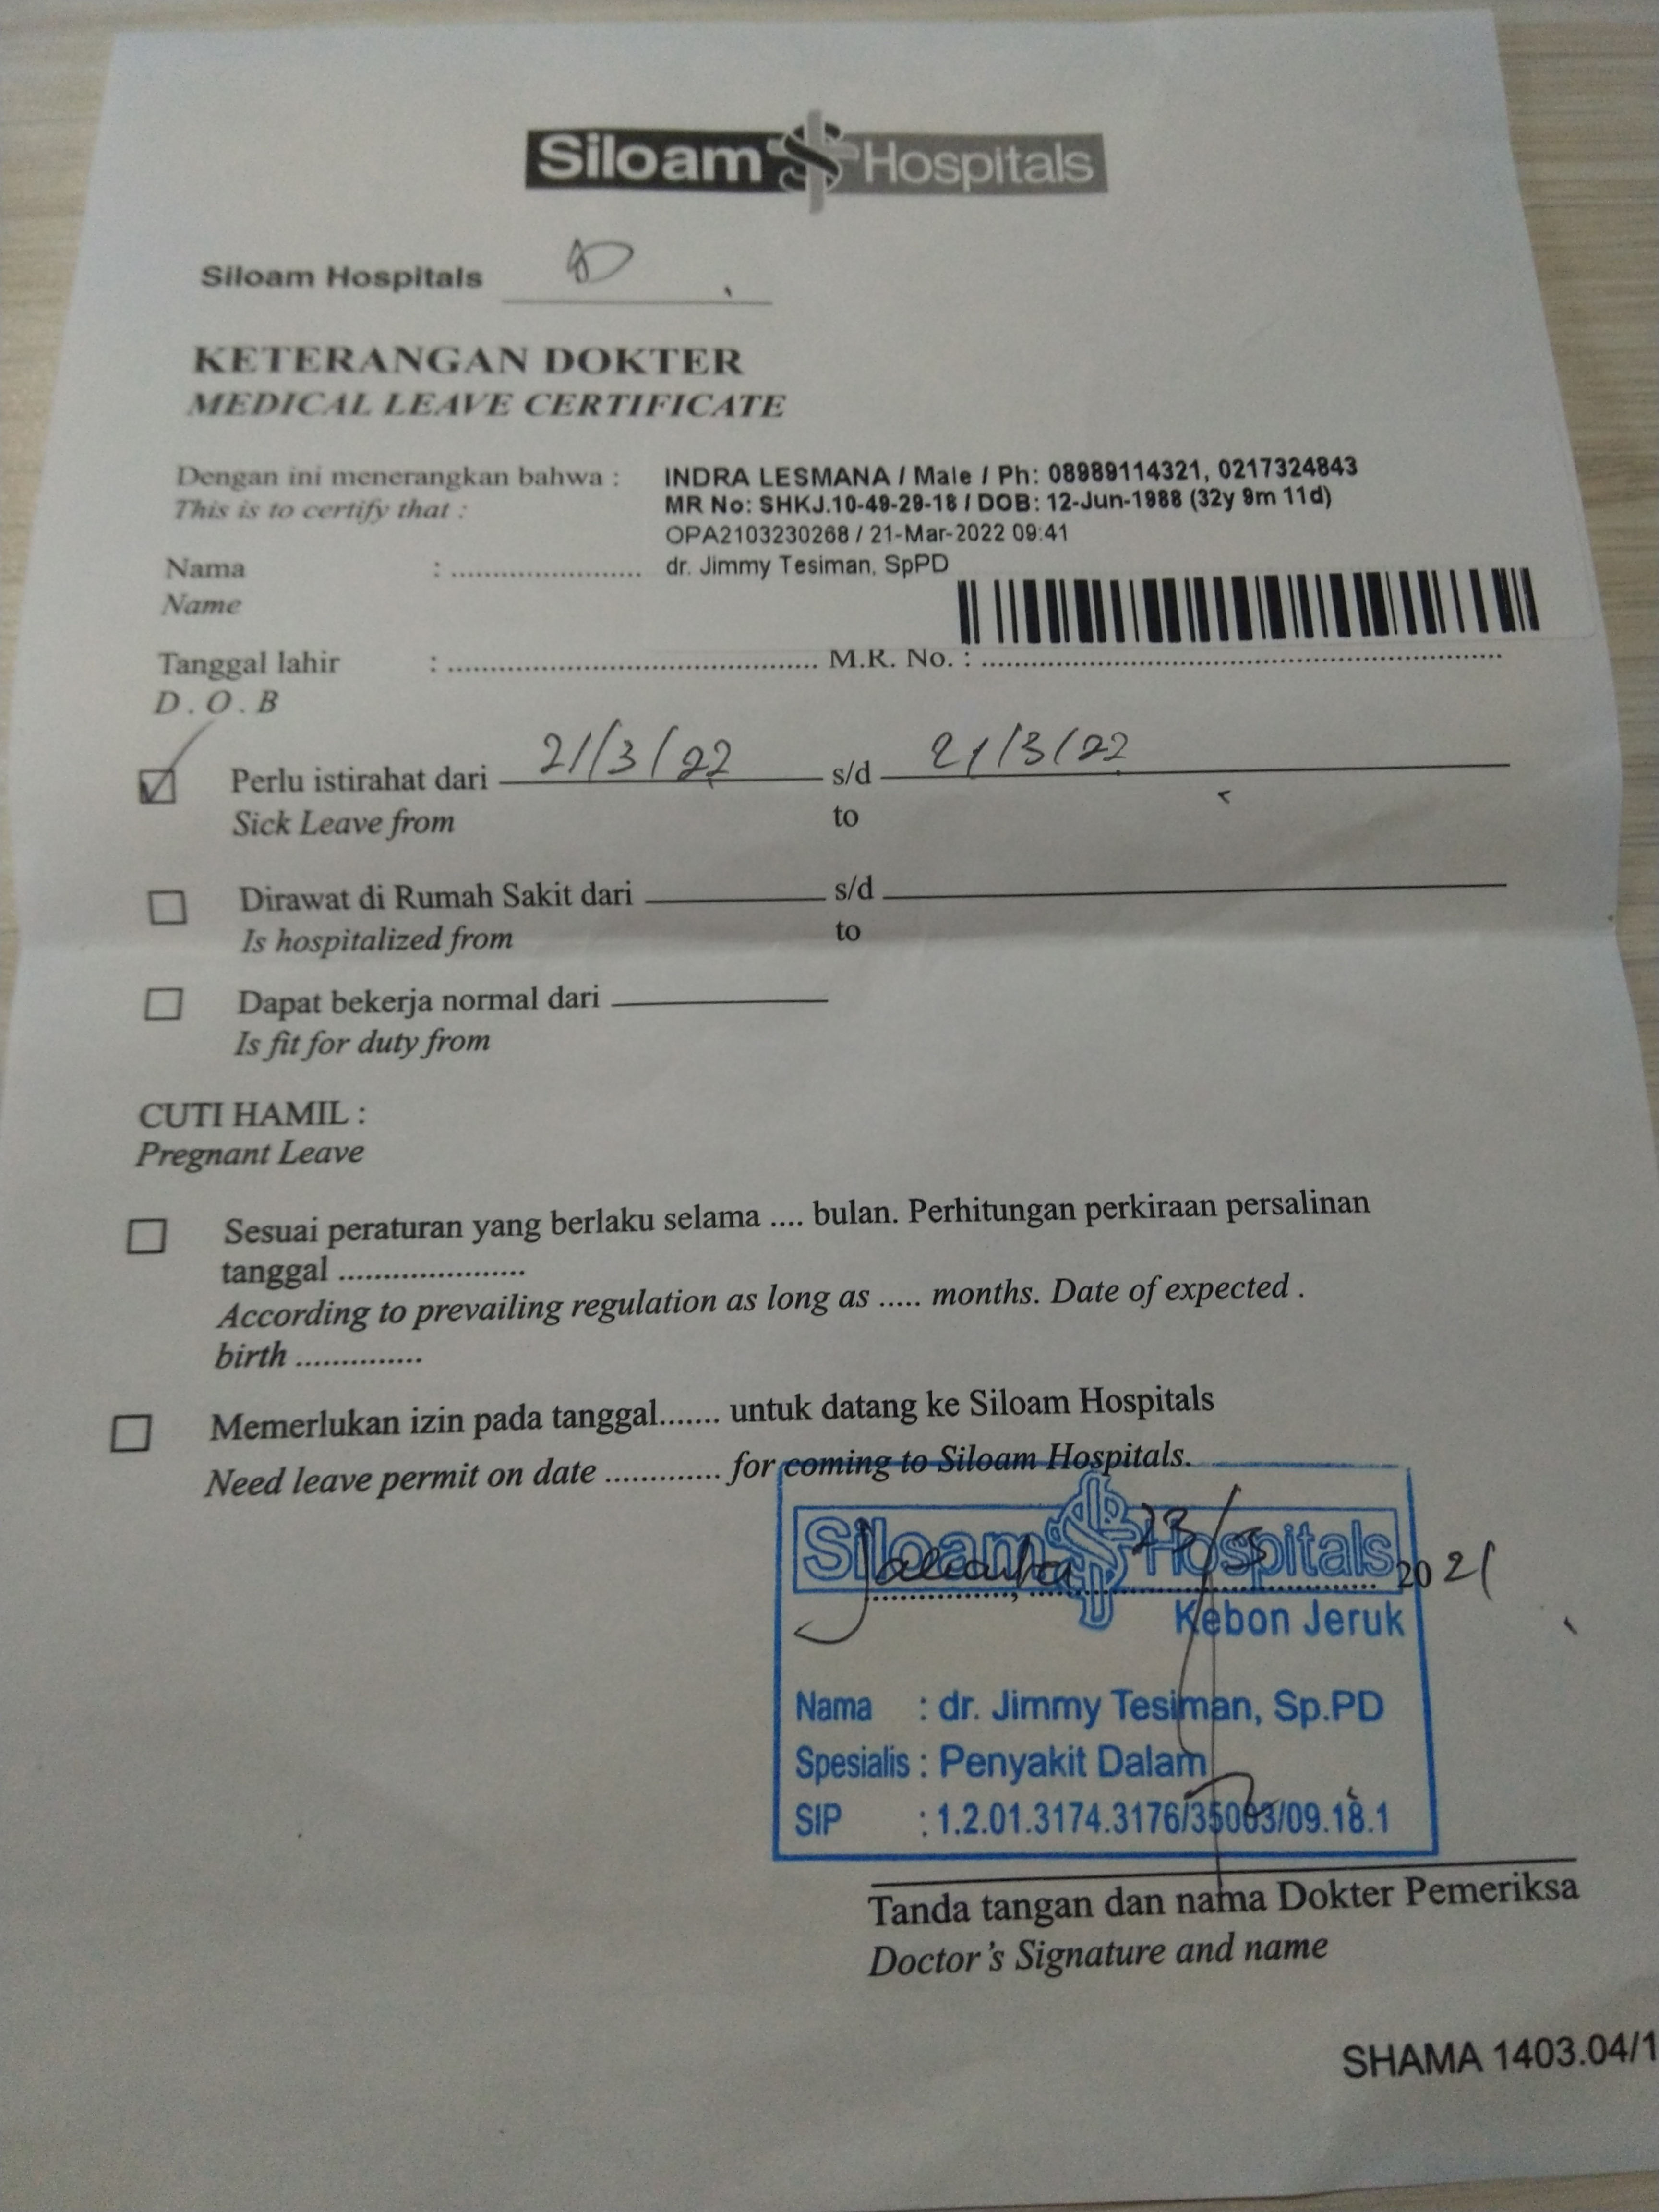 Siloam Hospitals
Siloam Hospitals
KETERANGAN DOKTER
MEDICAL LEAVE CERTIFICATE
Dengan ini menerangkan bahwa : INDRA LESMANA / Male / Ph: 08989114321, 0217324843
This is to certify that : MR No: SHKJ.10-49-29-18 / DOB: 12-Jun-1988 (32y 9m 11d)
OPA2103230268 / 21-Mar-2022 09:41
Nama : ........................ dr. Jimmy Tesiman, SpPD
Name
Tanggal lahir : ............................................. M.R. No. : ................................................................
D.O.B
Perlu istirahat dari 21/3/22 s/d 21/3/22
Sick Leave from to
Dirawat di Rumah Sakit dari s/d
Is hospitalized from to
Dapat bekerja normal dari
Is fit for duty from
CUTI HAMIL :
Pregnant Leave
Sesuai peraturan yang berlaku selama .... bulan. Perhitungan perkiraan persalinan
tanggal ......................
According to prevailing regulation as long as ..... months. Date of expected .
birth ...............
Memerlukan izin pada tanggal....... untuk datang ke Siloam Hospitals
Need leave permit on date ............. for coming to Siloam Hospitals.
Siloam Hospitals
Jakarta, 23/3 2021
Kebon Jeruk
Nama : dr. Jimmy Tesiman, Sp.PD
Spesialis : Penyakit Dalam
SIP : 1.2.01.3174.3176/35003/09.18.1
Tanda tangan dan nama Dokter Pemeriksa
Doctor's Signature and name
SHAMA 1403.04/1